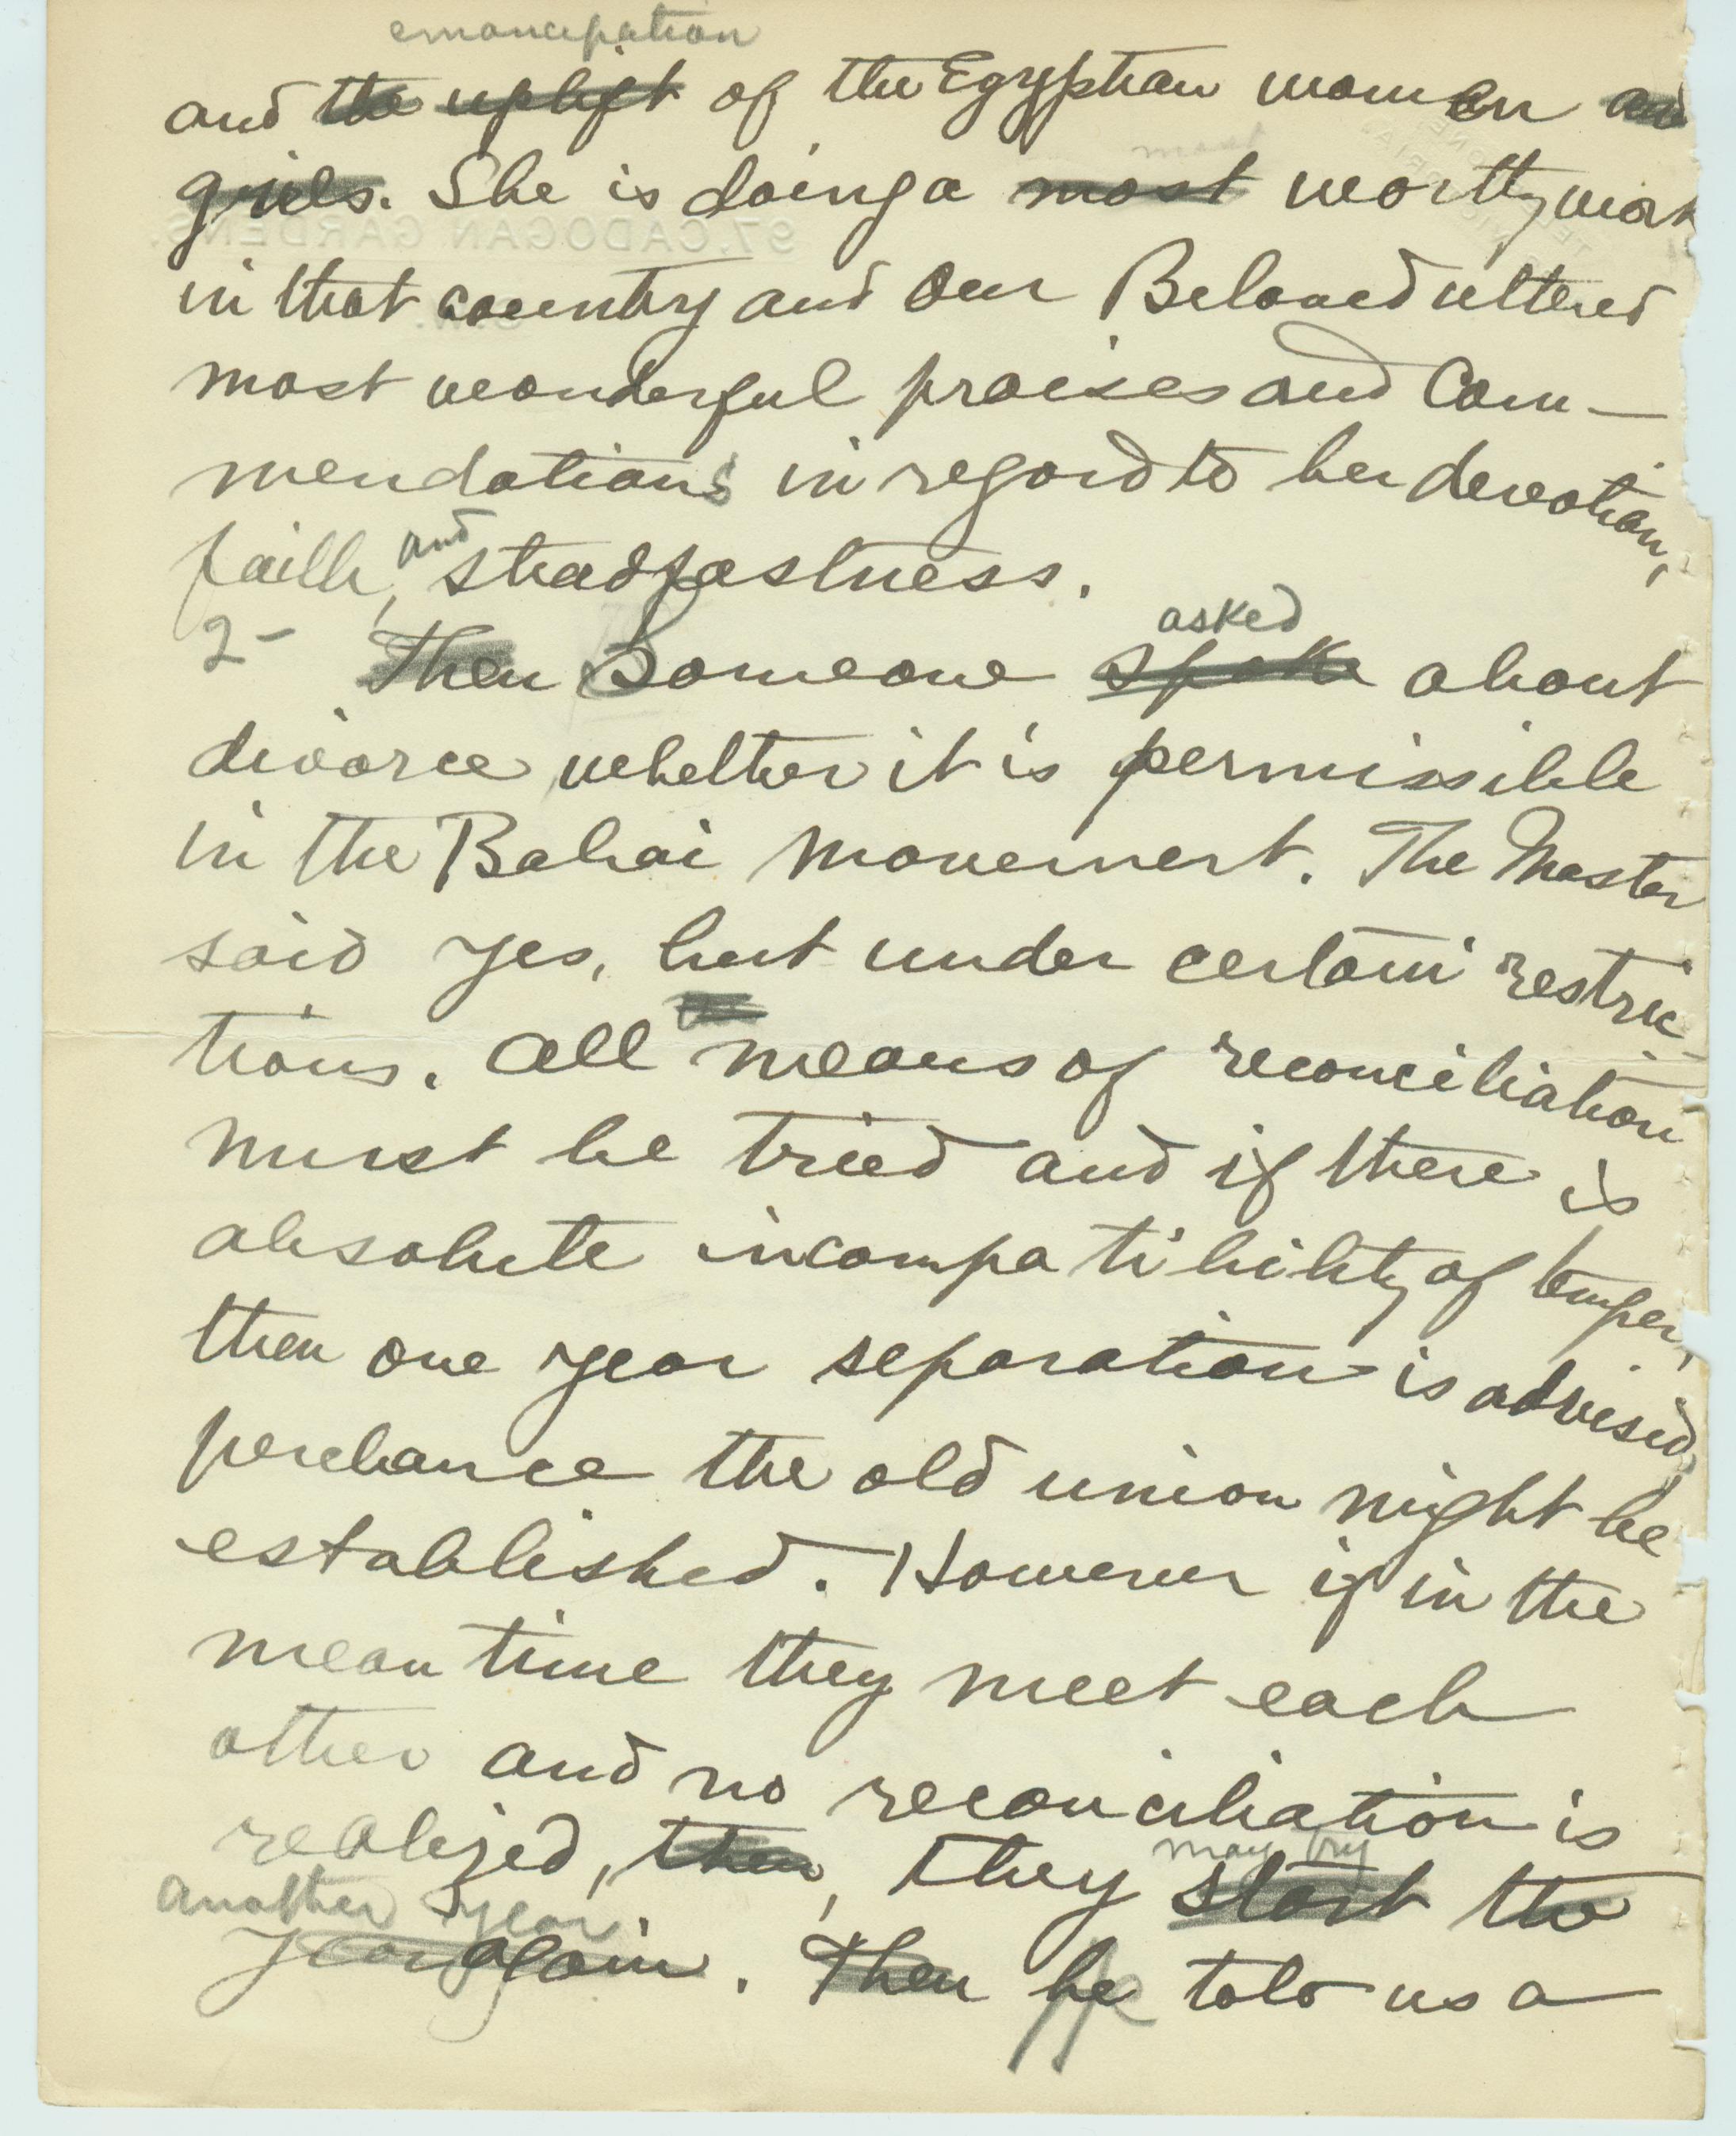 emancipation
and the uplift of the Egyptian women and
girls. She is doing a most worthy work
97, CADOGAN GARDENS.
in that country and Our Beloved uttered
most wonderful praises and Com-
mendations in regard to her devotion,
faith, and steadfastness.
asked
2- Then Someone spoke about
divorce whether it is permissible
in the Bahai Movement. The Master
said yes, but under certain restric-
tions. All the means of reconciliation
must be tried and if there is
absolute incompatibility of temper,
then one year separation is advised,
perchance the old union might be
established. However if in the
mean time they meet each
other and no reconciliation is
may try
realized, then, they start the
another year
year again. Then he told us a